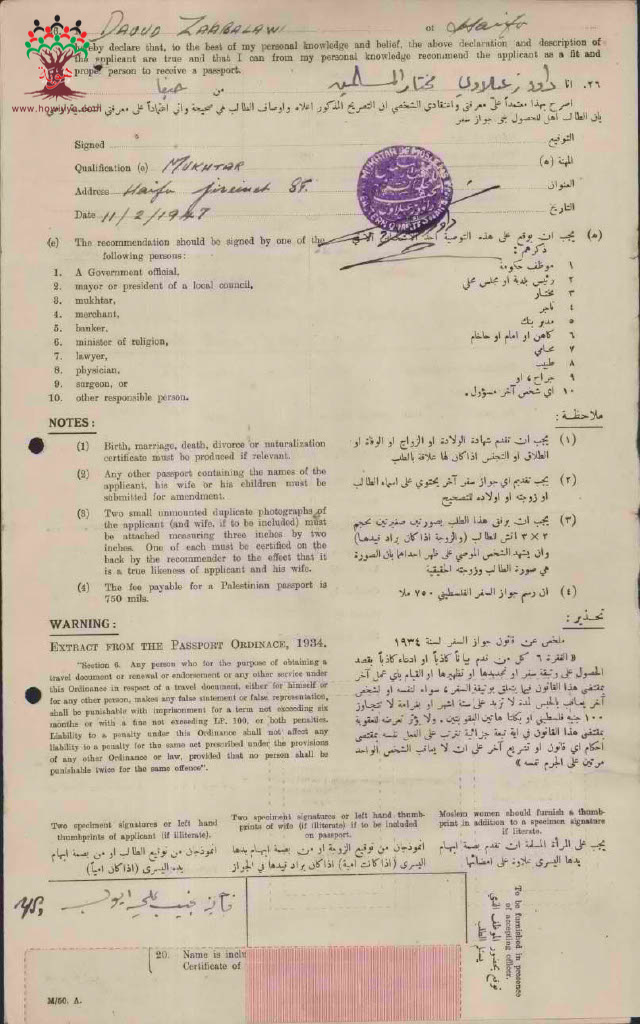 DAOUD ZAABALAWI of Haifa
hereby declare that, to the best of my personal knowledge and belief, the above declaration and description of
the applicant are true and that I can from my personal knowledge recommend the applicant as a fit and
proper person to receive a passport.
٢٦. انا داود زعبلاوي مختار المسلمين من حيفا
اصرح بهذا معتمداً على معرفتي واعتقادي الشخصي ان التصريح المذكور اعلاه واوصاف الطالب هي صحيحة واني اعتماداً على معرفتي الشخصية
بان الطالب اهل للحصول على جواز سفر
www.howiyya.com
Signed التوقيع
Qualification (e) MUKHTAR المهنة (ه)
Address Haifa ST. العنوان
Date 11/2/1947 التاريخ
MUKHTAR OF MOSLEMS
EASTERN QUARTER
(e) The recommendation should be signed by one of the
following persons:
1. A Government official,
2. mayor or president of a local council,
3. mukhtar,
4. merchant,
5. banker,
6. minister of religion,
7. lawyer,
8. physician,
9. surgeon, or
10. other responsible person.
(ه) يجب ان يوقع على هذه التوصية احد الاشخاص الآتي
ذكرهم:
١ موظف حكومة
٢ رئيس بلدية او مجلس محلي
٣ مختار
٤ تاجر
٥ مدير بنك
٦ كاهن او امام او حاخام
٧ محامي
٨ طبيب
٩ جراح، او
١٠ اي شخص آخر مسؤول.
NOTES:
(1) Birth, marriage, death, divorce or naturalization
certificate must be produced if relevant.
(2) Any other passport containing the names of the
applicant, his wife or his children must be
submitted for amendment.
(3) Two small unmounted duplicate photographs of
the applicant (and wife, if to be included) must
be attached measuring three inches by two
inches. One of each must be certified on the
back by the recommender to the effect that it
is a true likeness of applicant and his wife.
(4) The fee payable for a Palestinian passport is
750 mils.
ملاحظة:
(١) يجب ان تقدم شهادة الولادة او الزواج او الوفاة او
الطلاق او التجنس اذا كان لها علاقة بالطلب
(٢) يجب تقديم اي جواز سفر آخر يحتوي على اسماء الطالب
او زوجته او اولاده للتصحيح
(٣) يجب ان يرفق هذا الطلب بصورتين صغيرتين بحجم
٣ × ٣ انش للطالب (والزوجة اذا كان يراد قيدها)
وان يشهد الشخص الموصي على ظهر احداهما بان الصورة
هي صورة الطالب وزوجته الحقيقية
(٤) ان رسم جواز السفر الفلسطيني ٧٥٠ ملا
WARNING:
EXTRACT FROM THE PASSPORT ORDINACE, 1934.
"Section 6. Any person who for the purpose of obtaining a
travel document or renewal or endorsement or any other service under
this Ordinance in respect of a travel document, either for himself or
for any other person, makes any false statement or false representation,
shall be punishable with imprisonment for a term not exceeding six
months or with a fine not exceeding LP. 100, or both penalties.
Liability to a penalty under this Ordinance shall not affect any
liability to a penalty for the same act prescribed under the provisions
of any other Ordinance or law, provided that no person shall be
punishable twice for the same offence".
تحذير:
ملخص عن قانون جواز السفر لسنة ١٩٣٤
« الفقرة ٦ كل من قدم بياناً كاذباً او ادعاء كاذباً بقصد
الحصول على وثيقة سفر او تجديدها او تظهيرها او القيام باي عمل آخر
بمقتضى هذا القانون فيما يتعلق بوثيقة السفر، سواء لنفسه او لشخص
آخر يعاقب بالحبس لمدة لا تزيد على ستة اشهر او بغرامة لا تتجاوز
١٠٠ جنيه فلسطيني او بكلتا هاتين العقوبتين. ولا يؤثر تعرضه للعقوبة
بمقتضى هذا القانون في اية تبعة جزائية تترتب على الفعل نفسه بمقتضى
احكام اي قانون او تشريع آخر على ان لا يعاقب الشخص الواحد
مرتين على الجرم نفسه »
Two specimen signatures or left hand
thumbprints of applicant (if illiterate).
Two specimen signatures or left hand thumb-
prints of wife (if illiterate) if to be included
on passport.
Moslem women should furnish a thumb-
print in addition to a specimen signature
if literate.
انموذجان من توقيع الطالب او من بصمة ابهام
يده اليسرى (اذا كان امياً)
انموذجان من توقيع الزوجة او من بصمة ابهام يدها
اليسرى (اذا كانت امية) اذا كان يراد قيدها في الجواز
يجب على المرأة المسلمة ان تقدم بصمة ابهام
يدها اليسرى علاوة على امضائها
To be furnished in presence
of accepting officer.
توقع بحضور الموظف الذي
يستلم الطلب
20. Name is inclu
Certificate of
M/50. A.